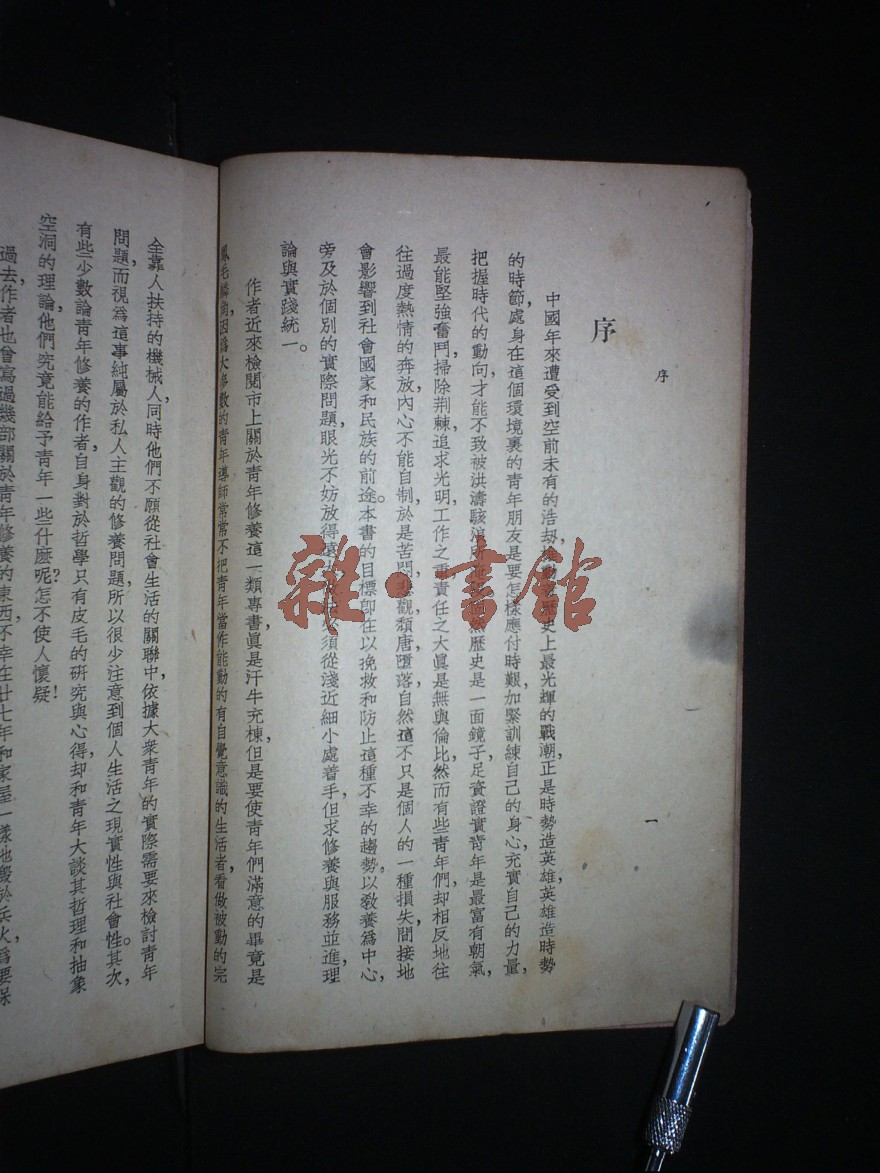 序
一
序
中國年來遭受到空前未有的浩劫，歷史上最光輝的戰潮，正是時勢造英雄，英雄造時勢
的時節，處身在這個環境裏的青年朋友是要怎樣應付時艱，加緊訓練自己的身心，充實自己的力量，
把握時代的動向，才能不致被洪濤駭浪所歷史是一面鏡子，足資證實青年是最富有朝氣，
最能堅強奮鬥，掃除荆棘，追求光明，工作之重，責任之大，真是無與倫比，然而有些青年們却相反地往
往過度熱情的奔放，內心不能自制，於是苦悶悲觀，頹唐墮落，自然，這不只是個人的一種損失，間接地
會影響到社會國家和民族的前途。本書的目標，卽在以挽救和防止這種不幸的趨勢，以敎養爲中心，
旁及於個別的實際問題，眼光不妨放得遠大，須從淺近細小處着手，但求修養與服務並進，理
論與實踐統一。
作者近來檢閱市上關於青年修養這一類專書，眞是汗牛充棟，但是要使青年們滿意的，畢竟是
鳳毛麟角，因爲大多數的青年導師常常不把青年當作能動的有自覺意識的生活者，看做被動的完
全靠人扶持的機械人，同時他們不願從社會生活的關聯中，依據大衆青年的實際需要來檢討青年
問題，而視爲這事純屬於私人主觀的修養問題，所以很少注意到個人生活之現實性與社會性。其次，
有些少數論青年修養的作者，自身對於哲學只有皮毛的研究與心得，却和青年大談其哲理和抽象
空洞的理論，他們究竟能給予青年一些什麽呢？怎不使人懷疑！
過去，作者也曾寫過幾部關於青年修養的東西，不幸在廿七年和家屋一樣地燬於兵火，爲要保
雜·書館